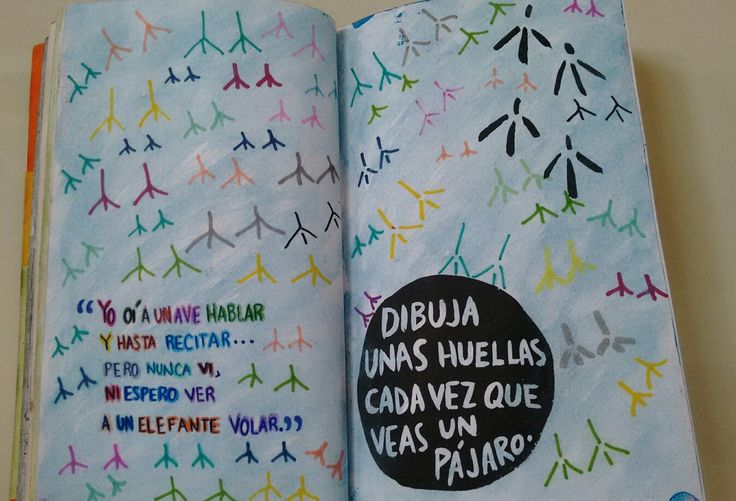 “Yo oí a un ave hablar
y hasta recitar...
pero nunca vi,
ni espero ver
a un elefante volar.”
DIBUJA
UNAS HUELLAS
CADA VEZ QUE
VEAS UN
PÁJARO.